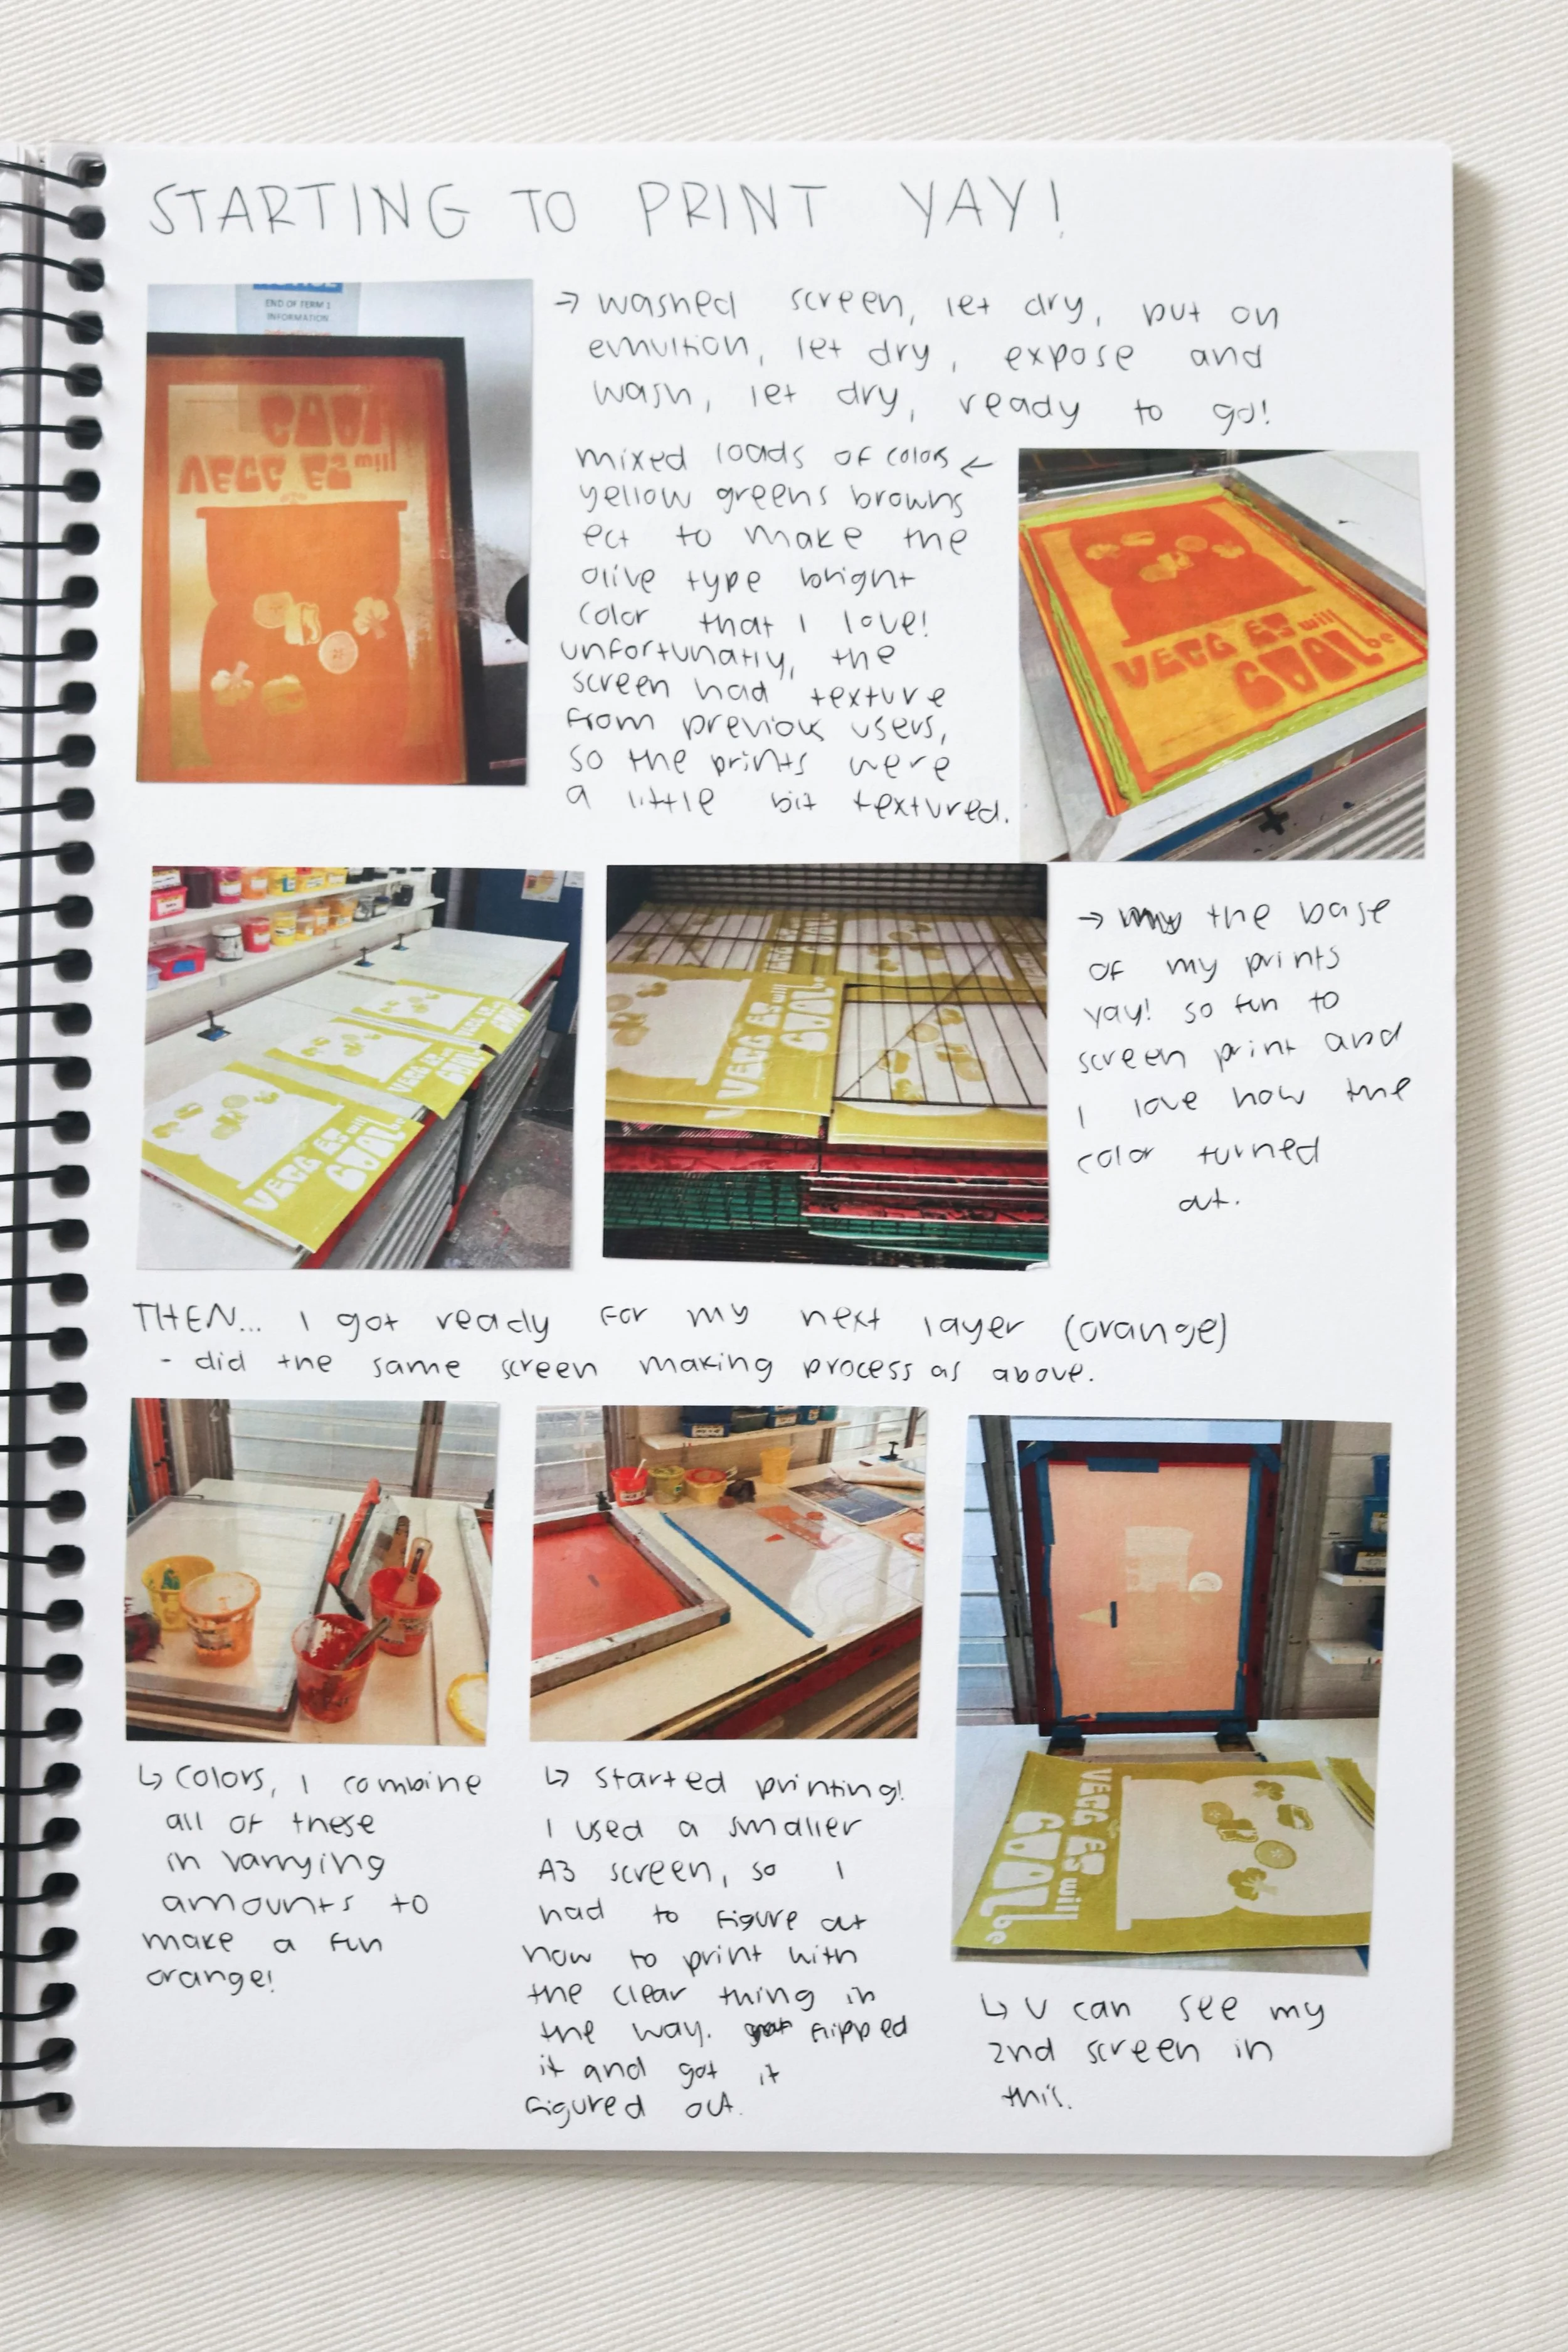 STARTING TO PRINT YAY!
END OF TERM 1
INFORMATION
→ washed screen, let dry, put on
emultion, let dry, expose and
wash, let dry, ready to go!
VEGG ES will
mixed loads of colors ←
yellow greens browns
ect to make the
olive type bright
color that I love!
unfortunatly, the
screen had texture
from previous users,
so the prints were
a little bit textured.
VEGG ES will
GOAL be
VEGG ES will
GOAL be
VEGG ES will
GOAL
VEGG ES will
GOAL
VEGG ES will
GOAL
→ the base
of my prints
yay! so fun to
screen print and
I love how the
color turned
out.
THEN... I got ready for my next layer (orange)
- did the same screen making process as above.
↳ colors, I combine
all of these
in varrying
amounts to
make a fun
orange!
↳ started printing!
I used a smaller
A3 screen, so I
had to figure out
how to print with
the clear thing in
the way. flipped
it and got it
figured out.
VEGG ES will
GOAL be
↳ U can see my
2nd screen in
this.